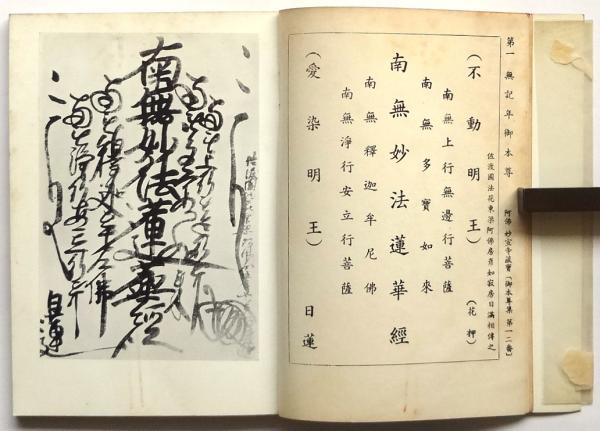 第一 無記年御本尊 阿佛 妙宣寺藏寶「御本尊集 第一二番」
佐渡國法花東梁阿佛房彦如寂房日滿相傳之
(不動明王) (花押)
南無上行無邊行菩薩
南無多寶如來
南無妙法蓮華經
南無釋迦牟尼佛
南無淨行安立行菩薩
(愛染明王) 日蓮
南無妙法蓮華經
日蓮